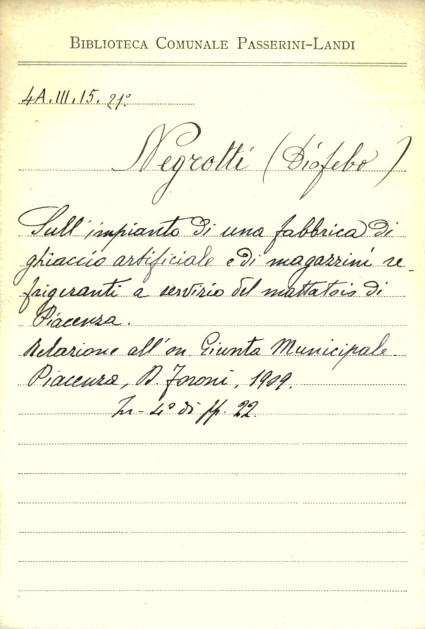 BIBLIOTECA COMUNALE PASSERINI-LANDI
4A.III.15.21°
Negrotti (Diofebo)
Sull'impianto di una fabbrica di
ghiaccio artificiale e di magazzini re-
frigeranti a servizio del mattatoio di
Piacenza.
Relazione all'on Giunta Municipale
Piacenza, D. Foroni, 1909.
In-4° di pp. 22.